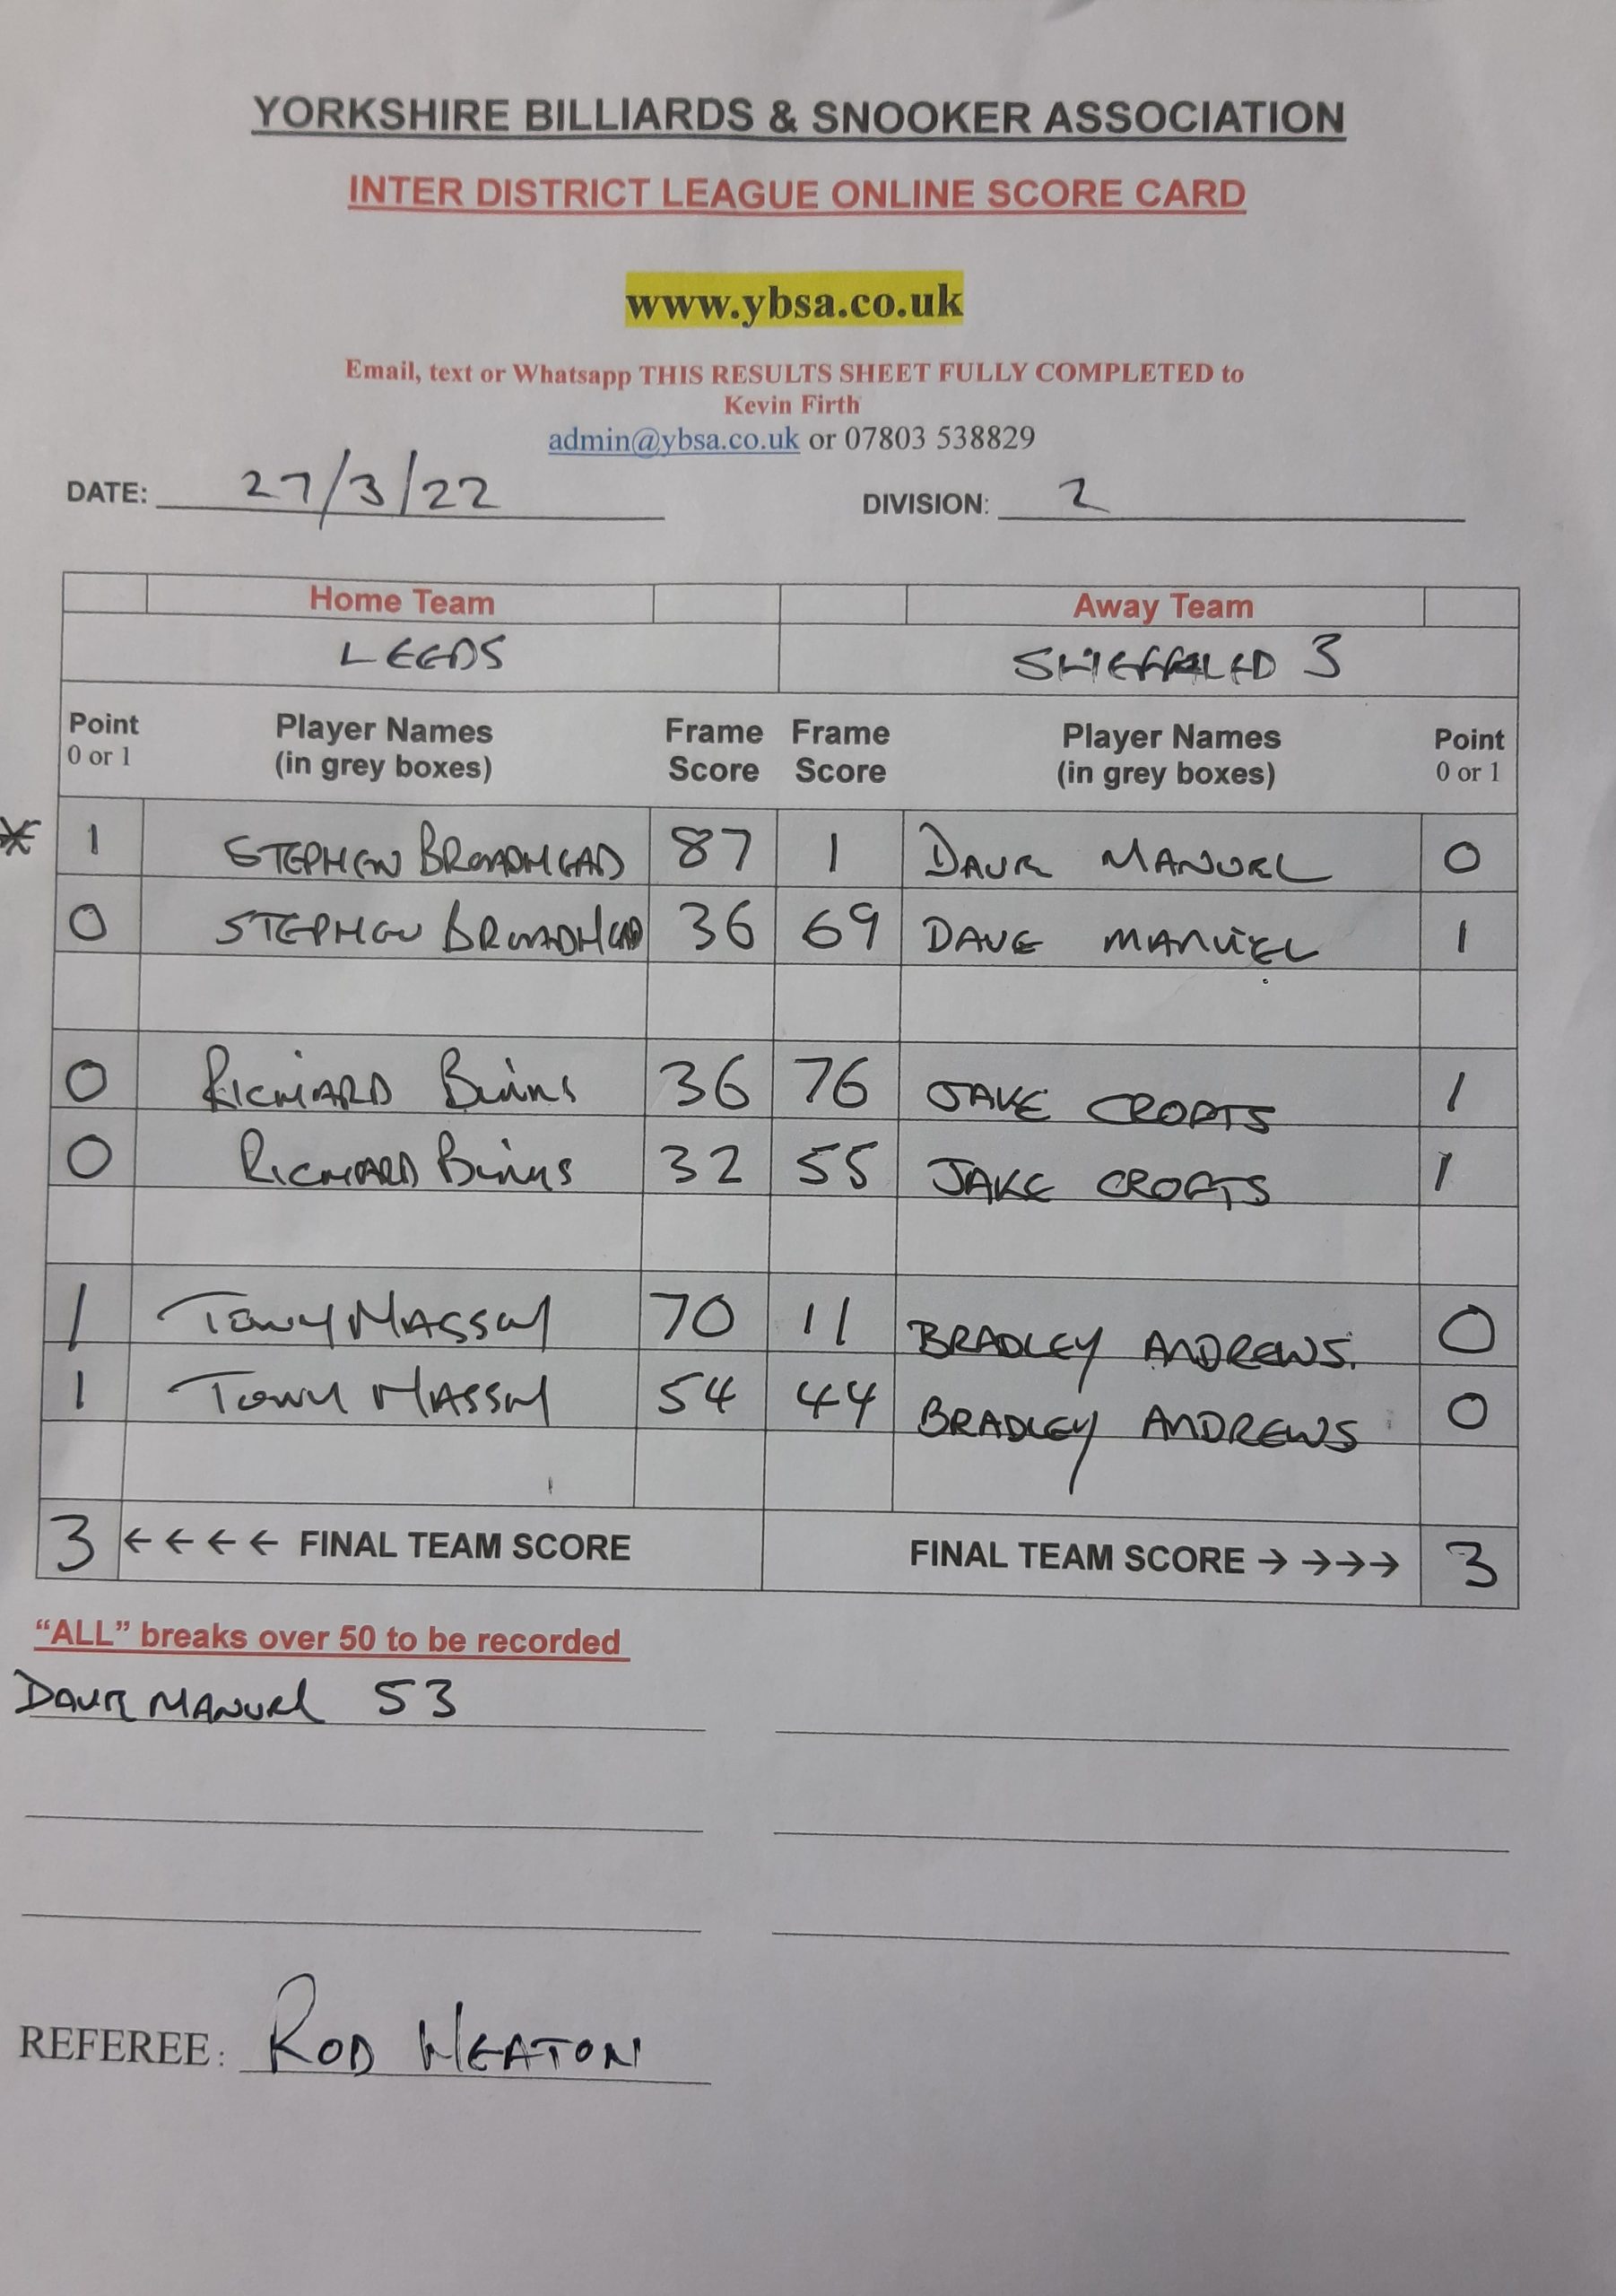 YORKSHIRE BILLIARDS & SNOOKER ASSOCIATION
INTER DISTRICT LEAGUE ONLINE SCORE CARD
www.ybsa.co.uk
Email, text or Whatsapp THIS RESULTS SHEET FULLY COMPLETED to
Kevin Firth
admin@ybsa.co.uk or 07803 538829
DATE: 27/3/22 DIVISION: 2
Home Team Away Team
LEEDS SHEFFIELD 3
Point 0 or 1 Player Names (in grey boxes) Frame Score Frame Score Player Names (in grey boxes) Point 0 or 1
* 1 STEPHEN BROADHEAD 87 1 DAVE MANUEL 0
0 STEPHEN BROADHEAD 36 69 DAVE MANUEL 1
0 RICHARD Binns 36 76 JAKE CROFTS 1
0 RICHARD Binns 32 55 JAKE CROFTS 1
1 Tony MASSEY 70 11 BRADLEY ANDREWS. 0
1 Tony MASSEY 54 44 BRADLEY ANDREWS 0
3 ←←←← FINAL TEAM SCORE FINAL TEAM SCORE → →→→ 3
“ALL” breaks over 50 to be recorded
DAVE MANUEL 53
REFEREE: ROD HEATON